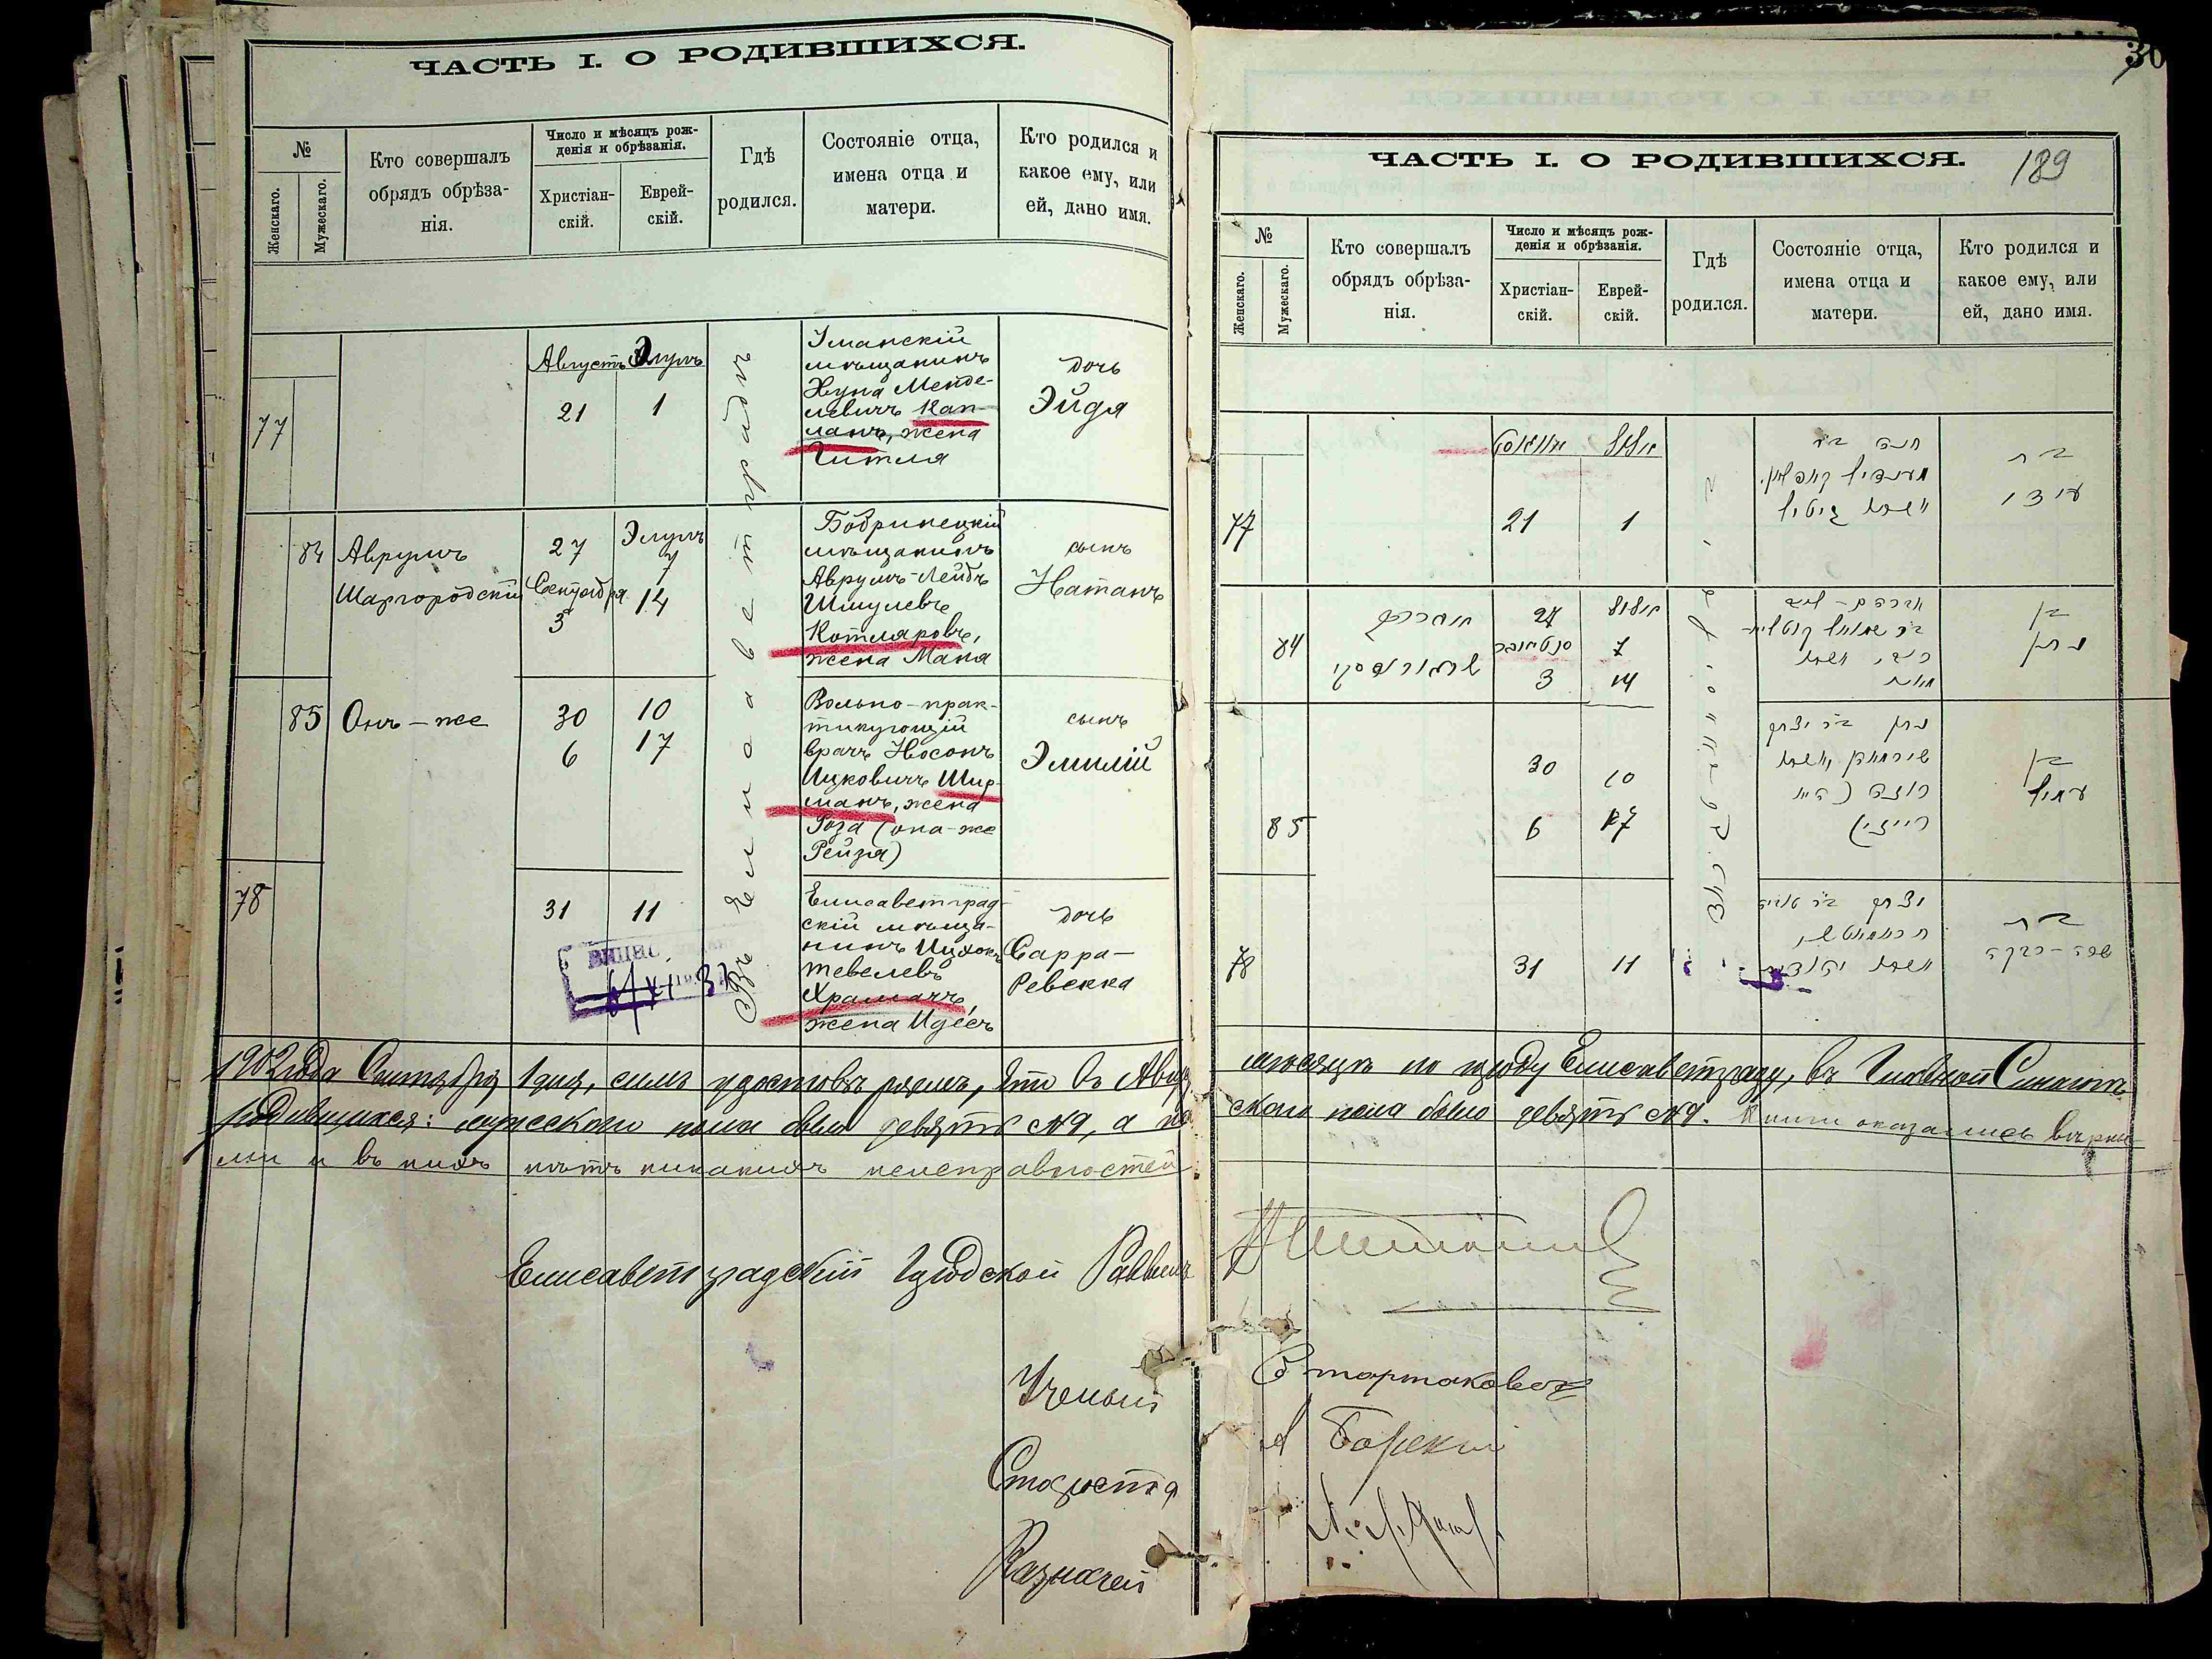 ЧАСТЬ I. О РОДИВШИХСЯ.
№
Женскаго.
Мужескаго.
Кто совершалъ
обрядъ обрѣза-
нія.
Число и мѣсяцъ рож-
денія и обрѣзанія.
Христіан-
скій.
Еврей-
скій.
Гдѣ
родился.
Состояніе отца,
имена отца и
матери.
Кто родился и
какое ему, или
ей, дано имя.
77
Августъ
21
Элулъ
1
Въ Елисаветградѣ
Уманскій
мѣщанинъ
Хуна Менде-
левичъ Кап-
ланъ, жена
Гитля
дочь
Эйдя
84
Аврумъ
Шаргородскій
27
Сентября
3
Элулъ
7
14
Бобринецкій
мѣщанинъ
Аврумъ-Лейбъ
Шмулевъ
Котляровъ,
жена Маня
сынъ
Натанъ
85
Онъ-же
30
6
10
17
Вольно-прак-
тикующій
врачъ Носонъ
Ицковичъ Шир-
манъ, жена
Роза (она-же
Рейзя)
сынъ
Эмилій
78
31
11
Елисаветград-
скій мѣща-
нинъ Ицхокъ
Тевелевъ
Храмачъ,
жена Идесъ
дочь
Сарра-
Ревекка
1902 года Сентября 1 дня, симъ удостовѣряемъ, что въ Августѣ
родившихся: мужескаго пола было девять №9, а жен
ми и въ нихъ нѣтъ никакихъ неисправностей
Елисаветградскій Городской Раввинъ
Ученый
Староста
Казначей
30
ЧАСТЬ I. О РОДИВШИХСЯ.
189
№
Женскаго.
Мужескаго.
Кто совершалъ
обрядъ обрѣза-
нія.
Число и мѣсяцъ рож-
денія и обрѣзанія.
Христіан-
скій.
Еврей-
скій.
Гдѣ
родился.
Состояніе отца,
имена отца и
матери.
Кто родился и
какое ему, или
ей, дано имя.
77
אויגוסט
21
אלול
1
חונה בר
מענדיל קאפלאן
אשתו גיטיל
בת
איידי
84
אברהם
27
3
אלול
7
14
בן
נתן
85
30
6
10
17
נתן בר יצחק
שירמאן ואשתו
רוזה (היא
רייזי)
בן
עמיל
78
31
11
בת
שרה-רבקה
мѣсяцѣ по городу Елисаветграду, въ Главной Синагогѣ
скаго пола было девять №9. Книги оказались вѣрны-
С Тартаковскій